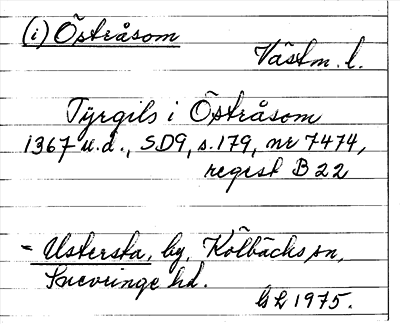 (i) Östråsom
Västm. l.
Tÿrgils i Östråsom
1367 u.d., SD9, s. 179, nr 7474,
regest B 22
= Ustersta, by, Kolbäcks sn,
Snevringe hd.
GL 1975.